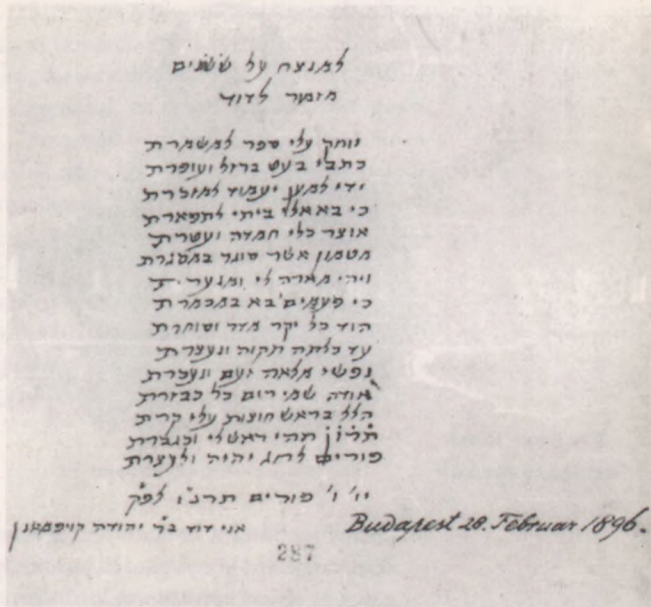 למנצח על ששנים
מזמור לדוד
יוחק עלי ספר למשמרת
כתבי בעט ברזל ועופרת
ידי למען יעמוד למזכרת
כי באאלף ביתי לתפארת
אוצר כלי חמדה ועטרת
מטמון אשר סוגר במסגרת
ויהי מארה לי ומגערת
כי פעמים בא במכמרת
הוד כל יקר מדד וסוחרת
עד כלתה תקוה ונעצרת
נפשי מלאה זעם ונעכרת
אודה שמי רום כל כבזרת
הלל בראש חוצות עלי קרית
תרון תהי ראש לי וכגברת
פורים לחג יהיה ולעצרת
יו' ו' פורים תרנ"ו לפק
אני דוד בר יהודה קויפמאנן
Budapest 28. Februar 1896.
287